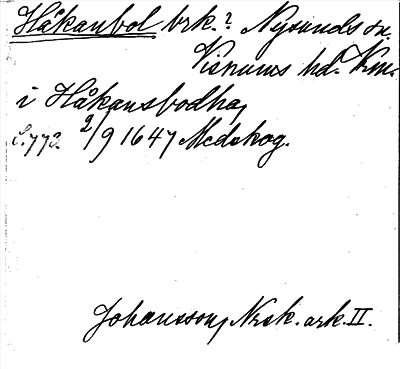 Håkanbol brk.? Nysunds sn.
Visnums hd. Vrml.
i Håkansbodha,
l. 773. 2/9 1647 Medskog.
Johansson, Nrsk. ark. II.